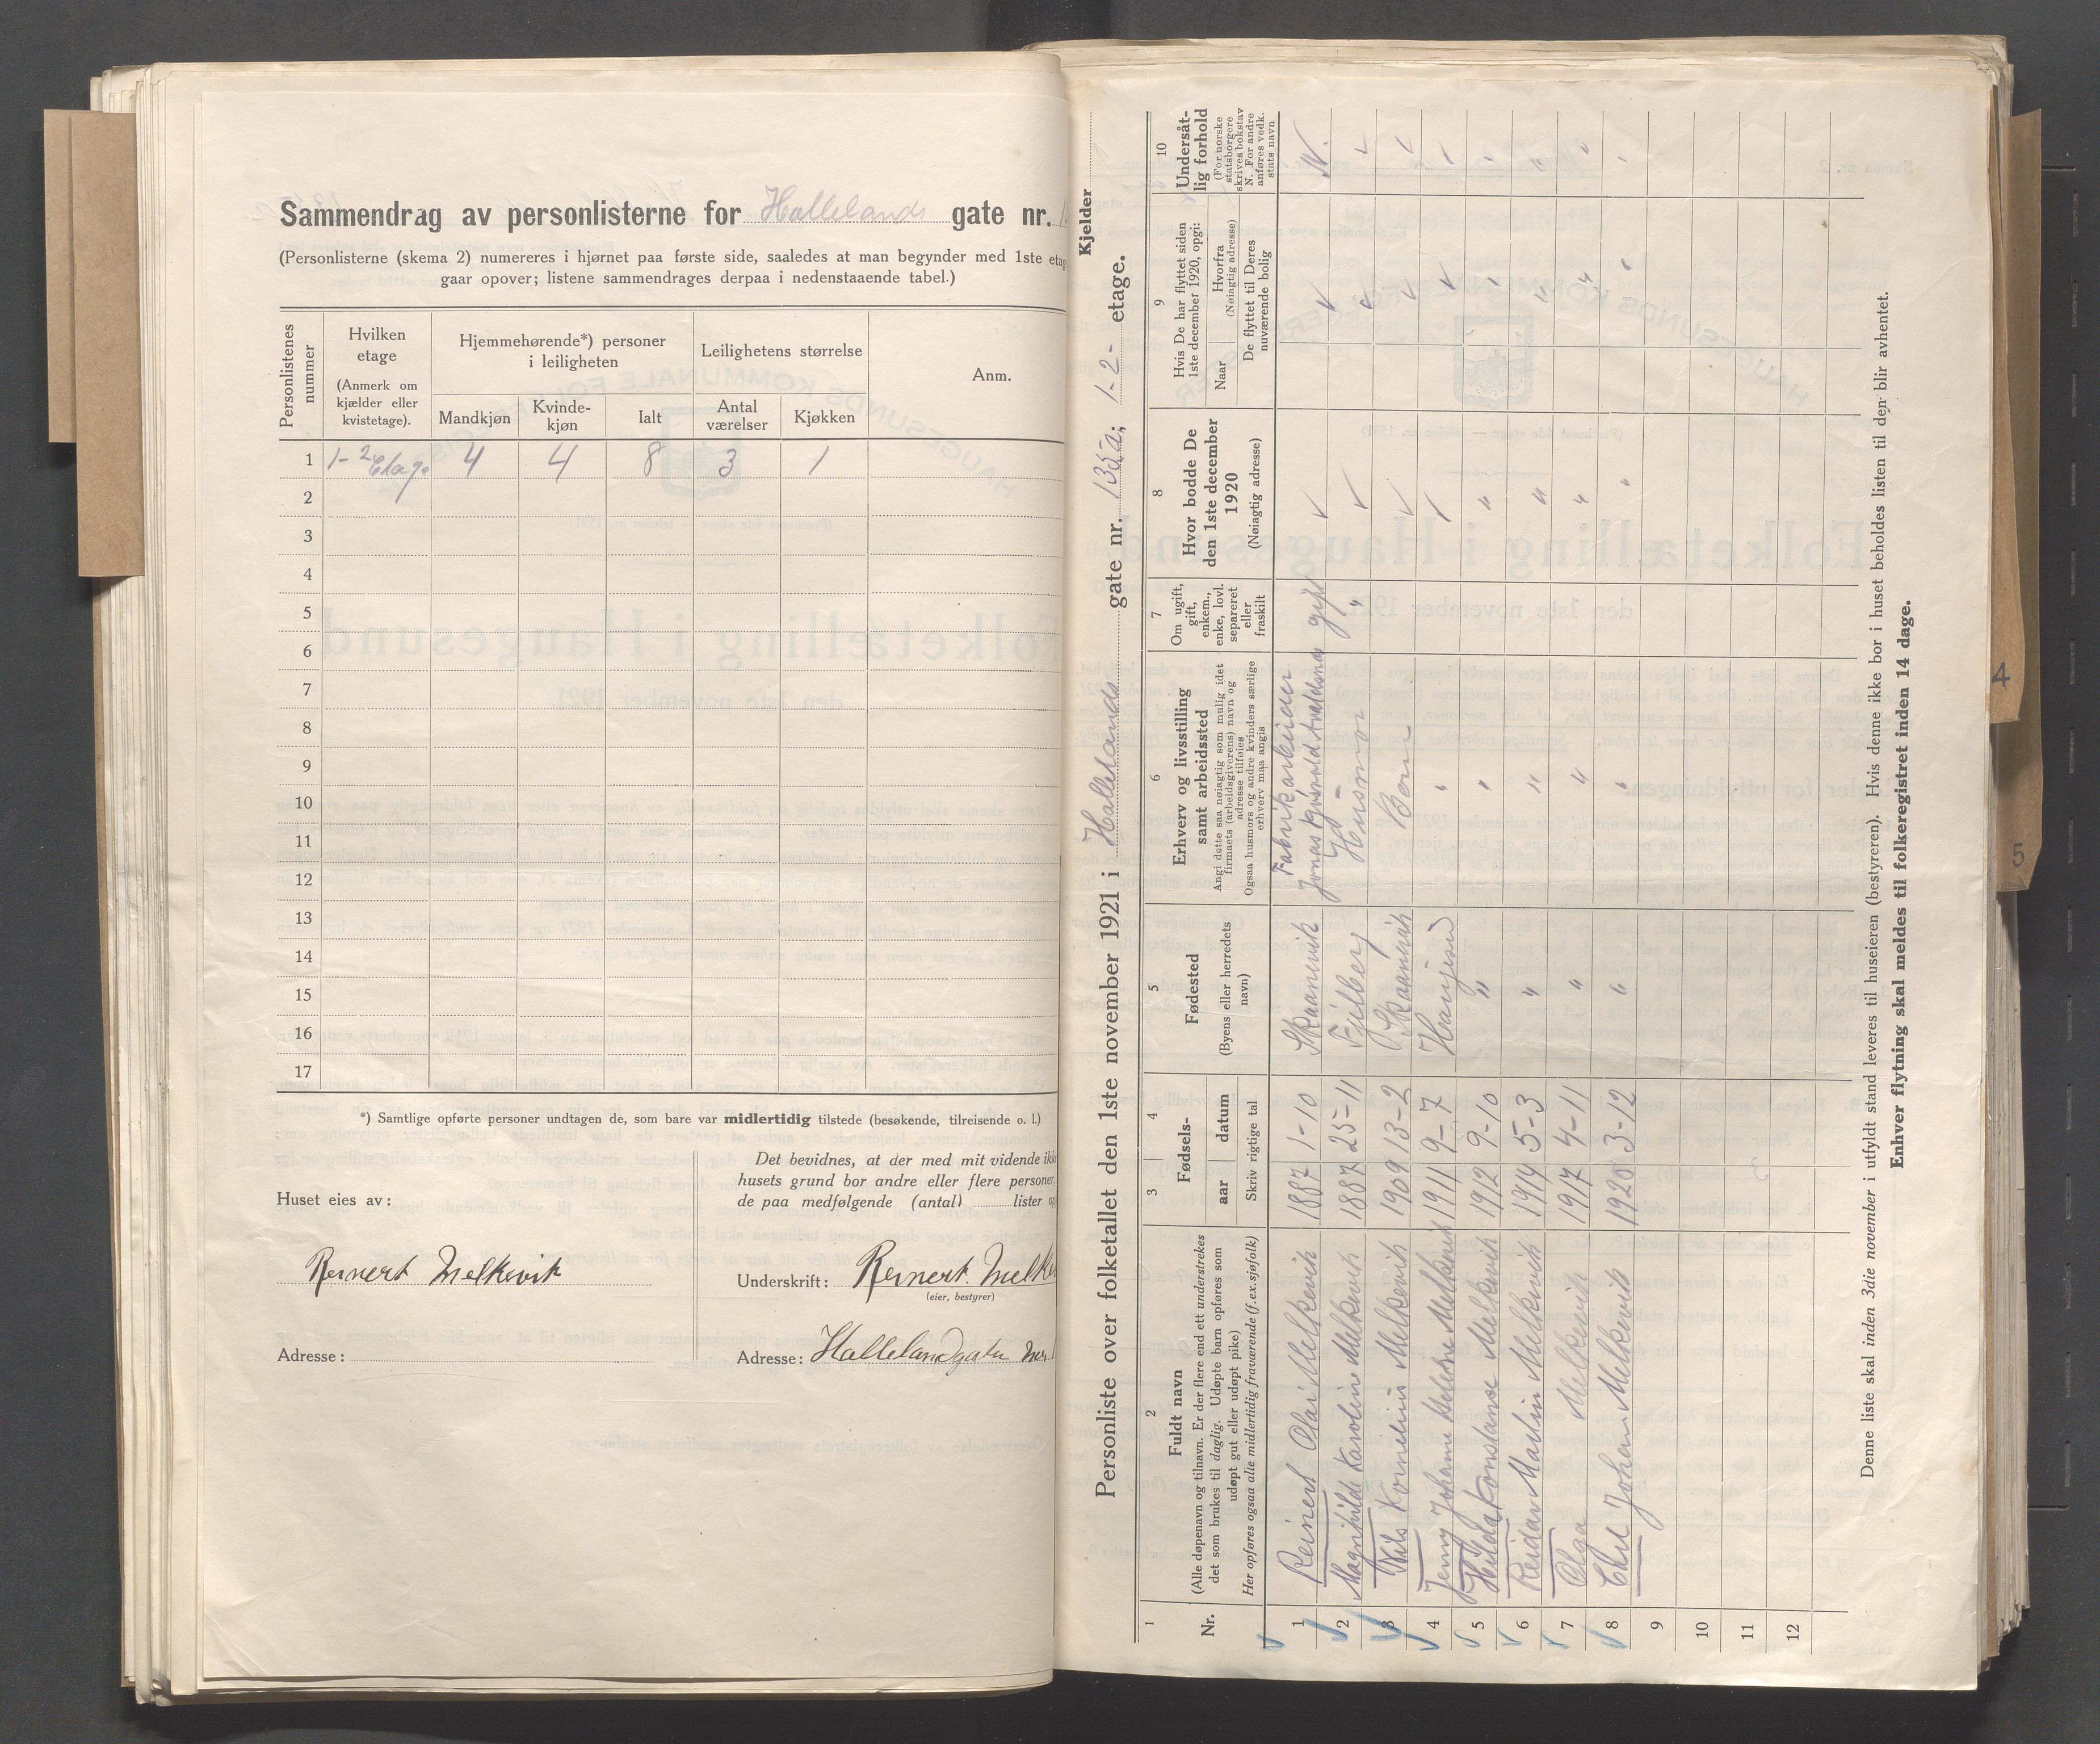 Sammendrag av personlisterne for Hallelands gate nr.
(Personlisterne (skema 2) numereres i hjørnet paa første side, saaledes at man begynder med 1ste etag
gaar opover; listene sammendrages derpaa i nedenstaaende tabel.)
Personlistenes nummer
Hvilken etage (Anmerk om kjælder eller kvistetage).
Hjemmehørende*) personer i leiligheten
Mandkjøn
Kvinde-kjøn
Ialt
Leilighetens størrelse
Antal værelser
Kjøkken
Anm.
1 1-2 Etage 4 4 8 3 1
2
3
4
5
6
7
8
9
10
11
12
13
14
15
16
17
*) Samtlige opførte personer undtagen de, som bare var midlertidig tilstede (besøkende, tilreisende o. l.)
Huset eies av:
Reinert Melkevik
Adresse:
Det bevidnes, at der med mit vidende ikke
husets grund bor andre eller flere personer,
de paa medfølgende (antal) lister op
Underskrift: Reinert Melke
(eier, bestyrer)
Adresse: Hallelandgaten No
Kjelder
Personliste over folketallet den 1ste november 1921 i Hallelands gate nr. 135a; 1-2- etage.
1
Nr.
2
Fuldt navn
(Alle døpenavn og tilnavn. Er der flere end ett understrekes
det som brukes til daglig. Udøpte barn opføres som
udøpt gut eller udøpt pike)
Her opføres ogsaa alle midlertidig fraværende (f.ex. sjøfolk)
3 4
Fødsels-
aar datum
Skriv rigtige tal
5
Fødested
(Byens eller herredets navn)
6
Erhverv og livsstilling
samt arbeidssted
Angi dette saa nøiagtig som mulig idet
firmaets (arbeidsgiverens) navn og
adresse tilføies
Ogsaa husmors og andre kvinders særlige
erhverv maa angis
7
Om ugift,
gift,
enkem.,
enke, lovl.
separeret
eller
fraskilt
8
Hvor bodde De
den 1ste december
1920
(Nøiagtig adresse)
9
Hvis De har flyttet siden
1ste december 1920, opgi:
Naar
Hvorfra
(Nøiagtig adresse)
De flyttet til Deres
nuværende bolig
10
Undersåt-
lig forhold
(For norske
statsborgere
skrives bokstav
N. For andre
anføres vedk.
stats navn
1 Reinert Olai Melkevik 1887 1-10 Skaanevik Fabrikarbeider gift N.
2 Magnhild Karoline Melkevik 1887 25-11 Fjelberg Husmor "
3 Nils Kornelius Melkevik 1909 13-2 Skaanevik Barn
4 Jenny Johanne Helene Melkevik 1911 9-7 Haugesund "
5 Hilda Konstanse Melkevik 1912 9-10 " " "
6 Reidar Malin Melkevik 1914 5-3 " " "
7 Olga Melkevik 1917 4-11 " " "
8 Carl Johan Melkevik 1920 3-12 " " "
9
10
11
12
Denne liste skal inden 3die november i utfyldt stand leveres til huseieren (bestyreren). Hvis denne ikke bor i huset beholdes listen til den blir avhentet.
Enhver flytning skal meldes til folkeregistret inden 14 dage.
4
5